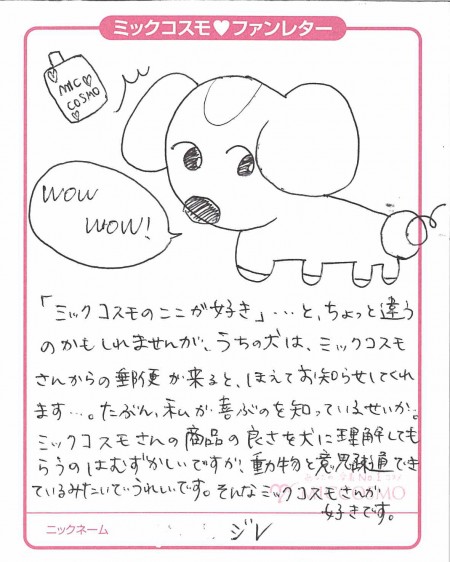 ミックコスモ♥ファンレター
MIC♡
COSMO
WOW
WOW!
「ミックコスモのここが好き」…と、ちょっと違う
のかもしれませんが、うちの犬は、ミックコスモ
さんからの郵便が来ると、ほえてお知らせしてくれ
ます…。たぶん、私が喜ぶのを知っているせいか。
ミックコスモさんの商品の良さを犬に理解しても
らうのはむずかしいですが、動物と意思疎通でき
ているみたいでうれしいです。そんなミックコスモさんが
好きです。
MICCOSMO
ニックネーム
ジレ